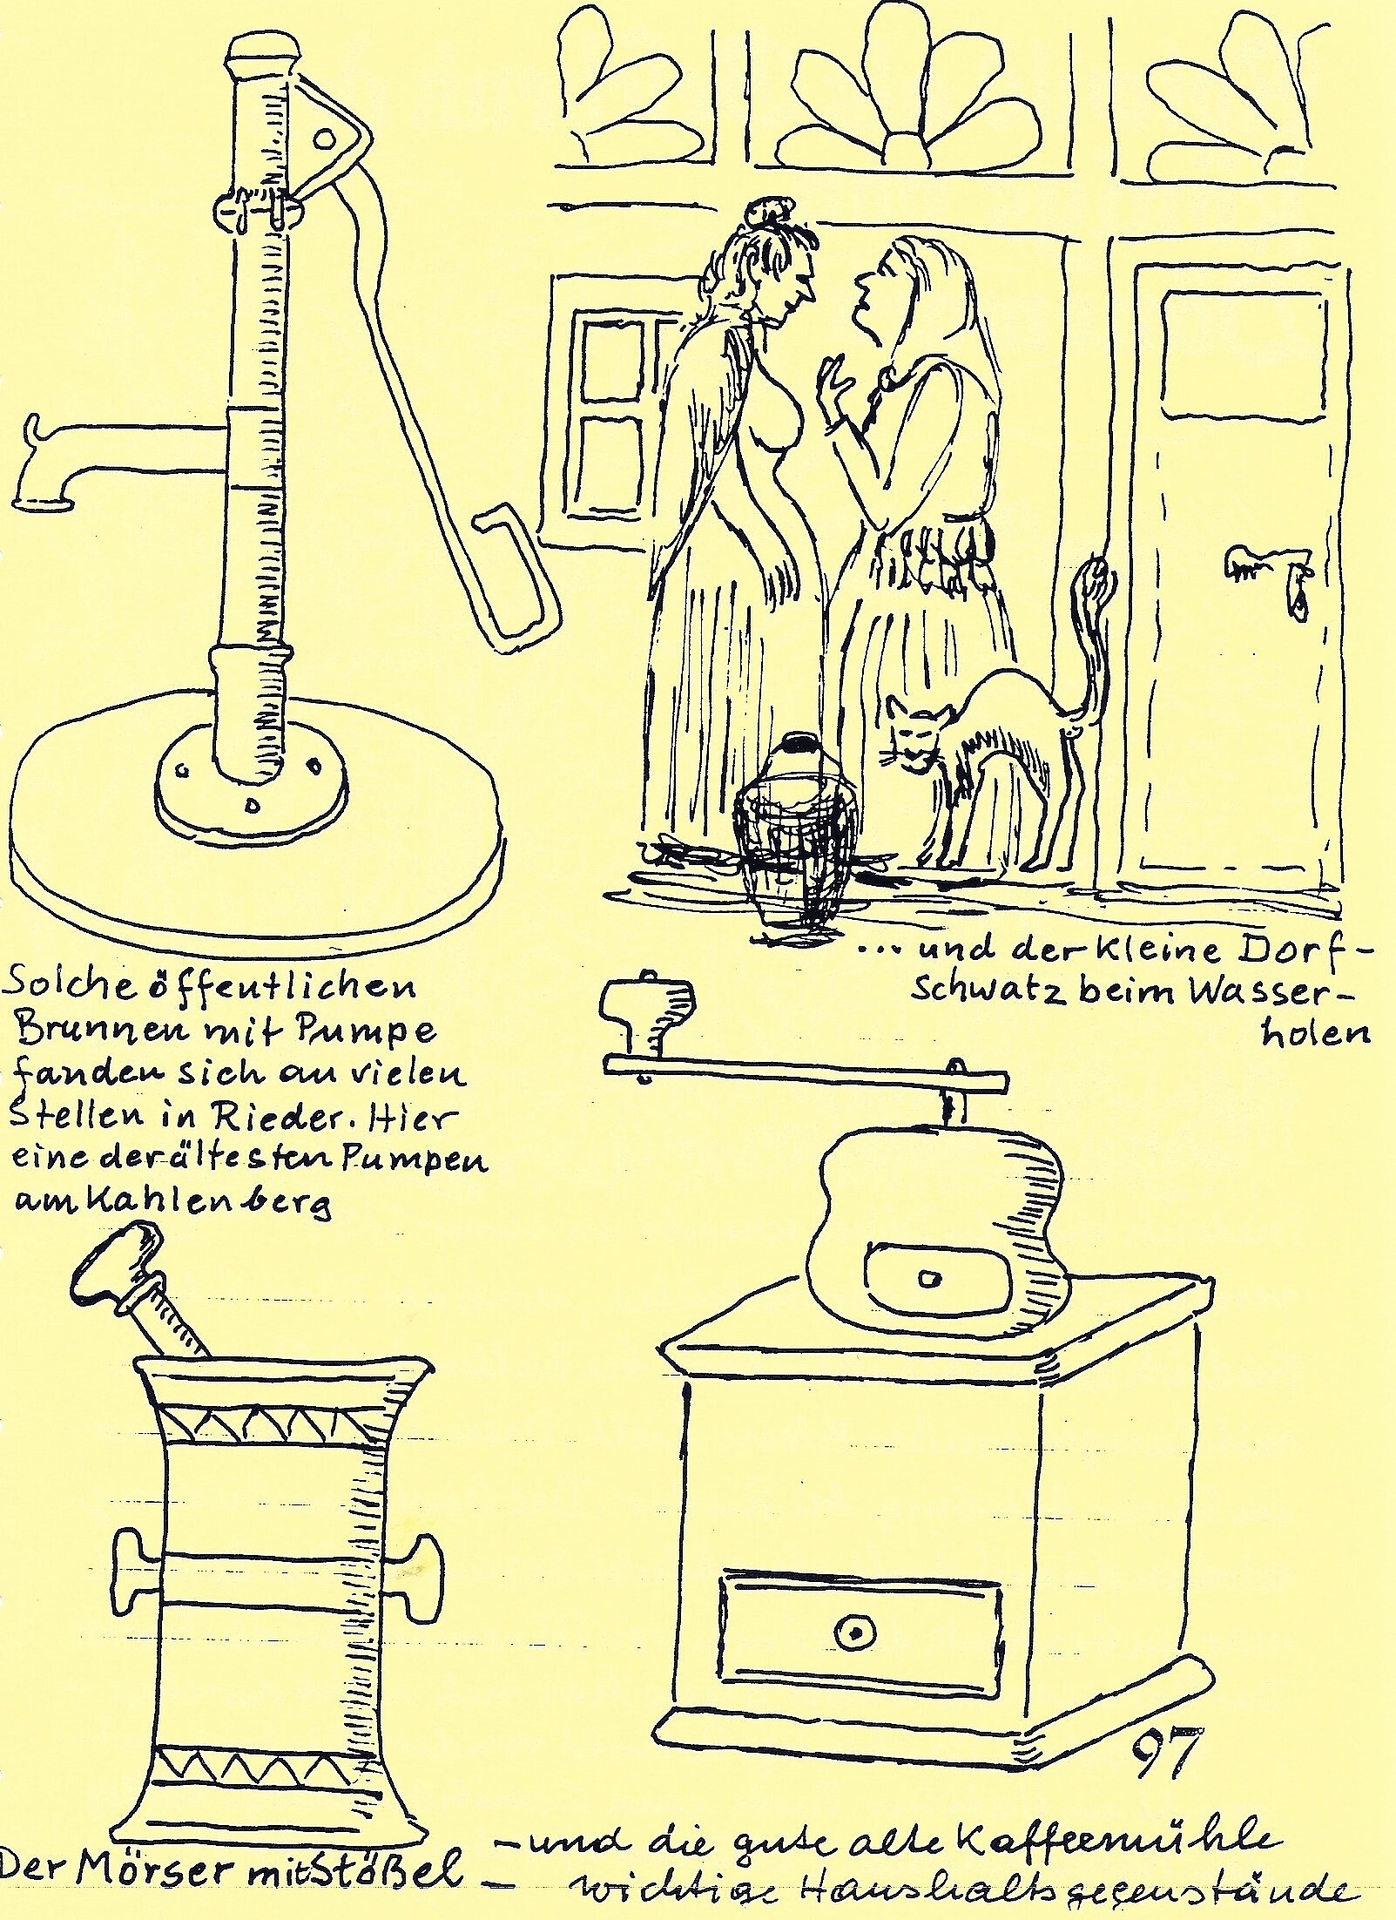 Solche öffentlichen
Brunnen mit Pumpe
fanden sich an vielen
Stellen in Rieder. Hier
eine der ältesten Pumpen
am Kahlenberg
... und der kleine Dorf-
Schwatz beim Wasser-
holen
97
Der Mörser mit Stößel
- und die gute alte Kaffeemühle
- wichtige Haushaltsgegenstände